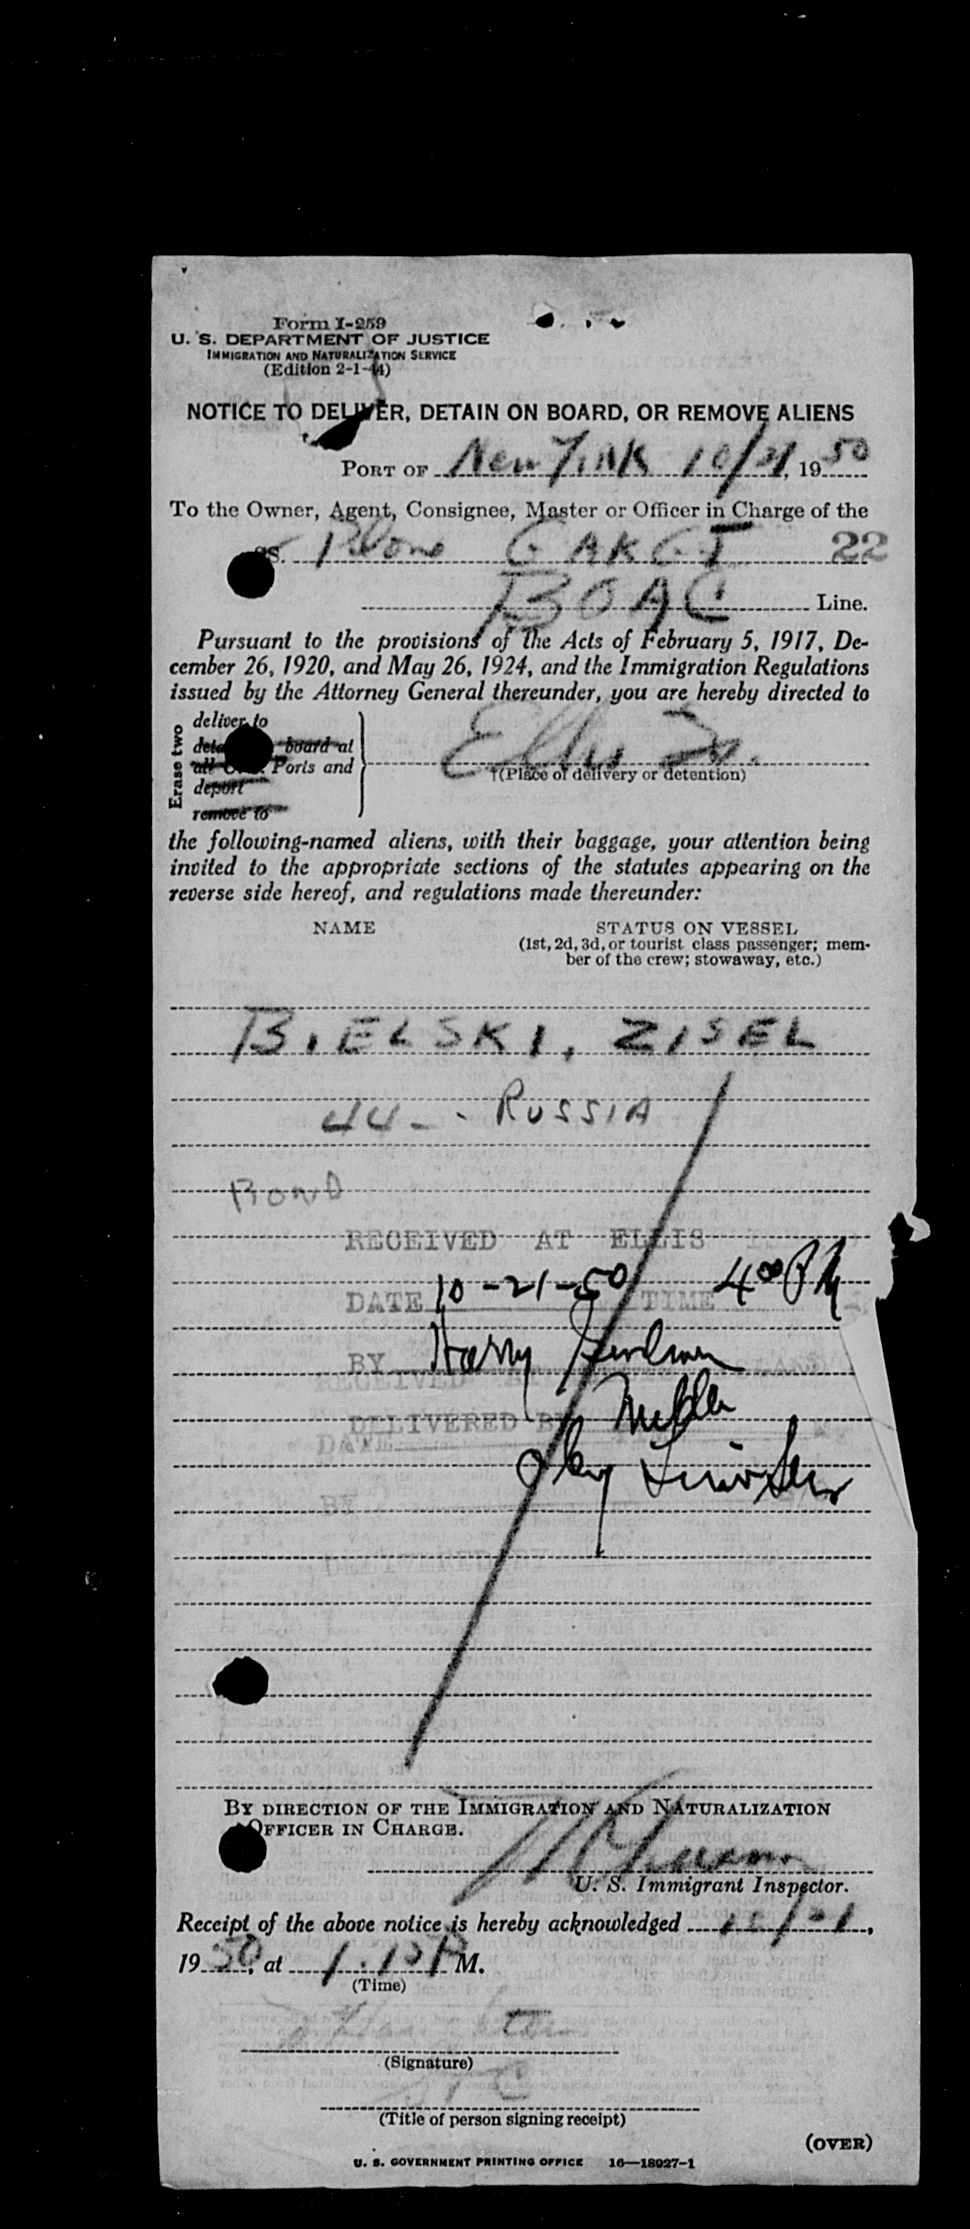 Form I-259
U. S. DEPARTMENT OF JUSTICE
IMMIGRATION AND NATURALIZATION SERVICE
(Edition 2-1-44)
NOTICE TO DELIVER, DETAIN ON BOARD, OR REMOVE ALIENS
PORT OF New York 10/21, 1950
To the Owner, Agent, Consignee, Master or Officer in Charge of the
SS. Plane G AKGJ 22
BOAC Line.
Pursuant to the provisions of the Acts of February 5, 1917, De-
cember 26, 1920, and May 26, 1924, and the Immigration Regulations
issued by the Attorney General thereunder, you are hereby directed to
Erase two
deliver to
board at
all Ports and
deport
remove to
Ellis Is.
(Place of delivery or detention)
the following-named aliens, with their baggage, your attention being
invited to the appropriate sections of the statutes appearing on the
reverse side hereof, and regulations made thereunder:
NAME STATUS ON VESSEL
(1st, 2d, 3d, or tourist class passenger; mem-
ber of the crew; stowaway, etc.)
BIELSKI, ZISEL
44 - RUSSIA
BOND
RECEIVED AT ELLIS
DATE 10-21-50 TIME 4 00 PM
BY Harry
RECEIVED AT
DELIVERED BY
DATE
BY
DELIVERED BY
BY DIRECTION OF THE IMMIGRATION AND NATURALIZATION
OFFICER IN CHARGE.
U. S. Immigrant Inspector.
Receipt of the above notice is hereby acknowledged 10/21,
1950, at 1.15 P M.
(Time)
(Signature)
(Title of person signing receipt)
(OVER)
U. S. GOVERNMENT PRINTING OFFICE 16—18027-1